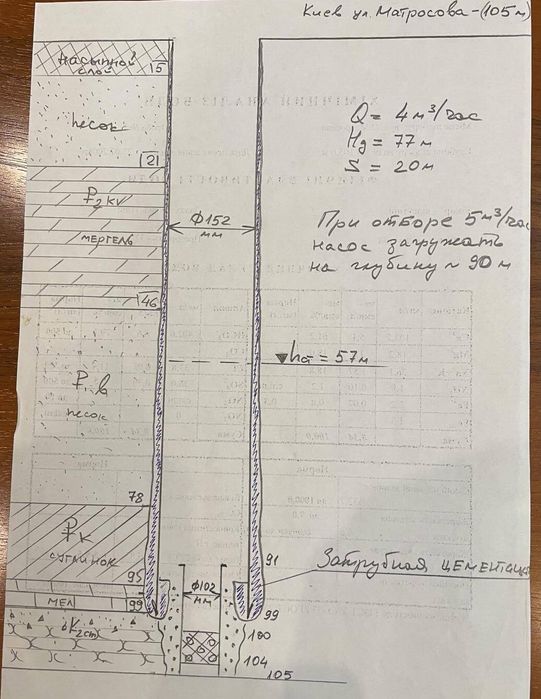 Киев ул. Матросова - (105 м)
насыпной
слой
5
Q = 4 м³/час
Hg = 77 м
S = 20 м
песок
21
P₂ kv
мергель
Ф152
мм
При отборе 5 м³/час
насос загружать
на глубину ~ 90 м
46
hст = 57 м
песок
78
Pк
суглинок
91
Затрубная цементация
95
Ф102
мм
мел
99
99
K₂ст
100
104
105